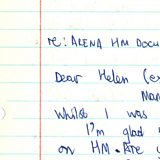 re: ALENA HM DOCU
Dear Helen (ex
Man
Whilst I was
I'm glad
on HM. Are